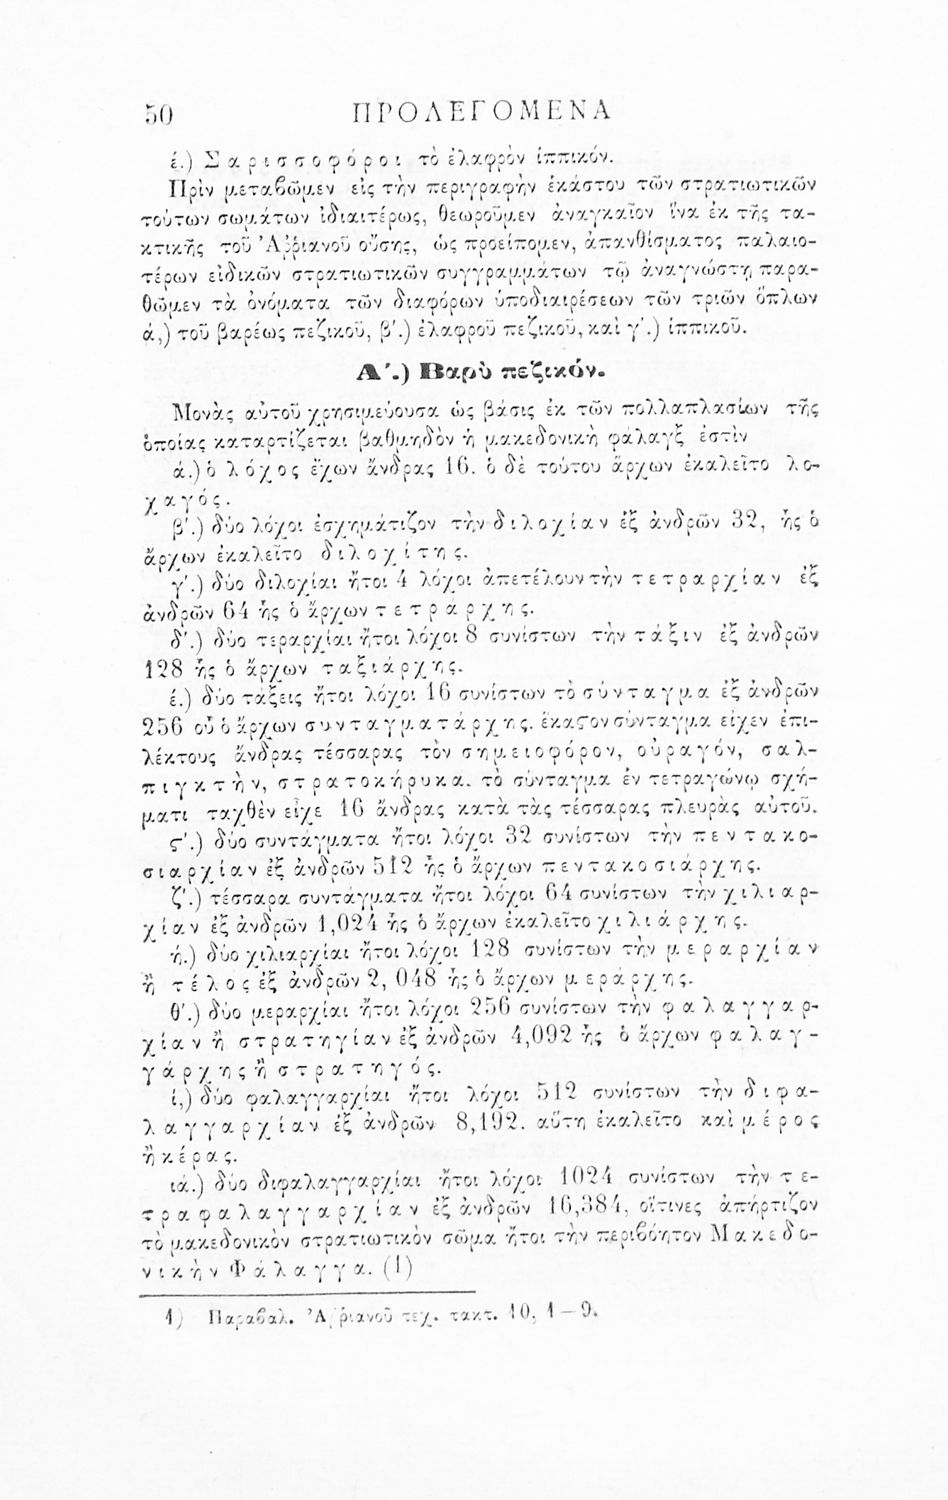 50 ΠΡΟΛΕΓΟΜΕΝΑ
έ.) Σαρισσοφόροι τὸ ἐλαφρὸν ἱππικόν.
Πρὶν μεταβῶμεν εἰς τὴν περιγραφὴν ἑκάστου τῶν στρατιωτικῶν
τούτων σωμάτων ἰδιαιτέρως, θεωροῦμεν ἀναγκαῖον ἵνα ἐκ τῆς τα-
κτικῆς τοῦ Ἀῤῥιανοῦ οὔσης, ὡς προείπομεν, ἀπανθίσματος παλαιο-
τέρων εἰδικῶν στρατιωτικῶν συγγραμμάτων τῷ ἀναγνώστῃ παρα-
θῶμεν τὰ ὀνόματα τῶν διαφόρων ὑποδιαιρέσεων τῶν τριῶν ὅπλων
ά,) τοῦ βαρέως πεζικοῦ, β΄.) ἐλαφροῦ πεζικοῦ, καὶ γ΄.) ἱππικοῦ.
Α΄.) Βαρὺ πεζικόν.
Μονὰς αὐτοῦ χρησιμεύουσα ὡς βάσις ἐκ τῶν πολλαπλασίων τῆς
ὁποίας καταρτίζεται βαθμηδὸν ἡ μακεδονικὴ φάλαγξ ἐστὶν
ά.) ὁ λόχος ἔχων ἄνδρας 16. ὁ δὲ τούτου ἄρχων ἐκαλεῖτο λο-
χαγός.
β΄.) δύο λόχοι ἐσχημάτιζον τὴν διλοχίαν ἐξ ἀνδρῶν 32, ἧς ὁ
ἄρχων ἐκαλεῖτο διλοχίτης.
γ΄.) δύο διλοχίαι ἤτοι 4 λόχοι ἀπετέλουν τὴν τετραρχίαν ἐξ
ἀνδρῶν 64 ἧς ὁ ἄρχων τετράρχης.
δ΄.) δύο τεραρχίαι ἤτοι λόχοι 8 συνίστων τὴν τάξιν ἐξ ἀνδρῶν
128 ἧς ὁ ἄρχων ταξιάρχης.
έ.) δύο τάξεις ἤτοι λόχοι 16 συνίστων τὸ σύνταγμα ἐξ ἀνδρῶν
256 οὗ ὁ ἄρχων συνταγματάρχης. ἕκαϛον σύνταγμα εἶχεν ἐπι-
λέκτους ἄνδρας τέσσαρας τὸν σημειοφόρον, οὐραγόν, σαλ-
πιγκτὴν, στρατοκήρυκα. τὸ σύνταγμα ἐν τετραγώνῳ σχή-
ματι ταχθὲν εἶχε 16 ἄνδρας κατὰ τὰς τέσσαρας πλευρὰς αὐτοῦ.
ϛ΄.) δύο συντάγματα ἤτοι λόχοι 32 συνίστων τὴν πεντακο-
σιαρχίαν ἐξ ἀνδρῶν 512 ἧς ὁ ἄρχων πεντακοσιάρχης.
ζ΄.) τέσσαρα συντάγματα ἤτοι λόχοι 64 συνίστων τὴν χιλιαρ-
χίαν ἐξ ἀνδρῶν 1,024 ἧς ὁ ἄρχων ἐκαλεῖτο χιλιάρχης.
ή.) δύο χιλιαρχίαι ἤτοι λόχοι 128 συνίστων τὴν μεραρχίαν
ἢ τέλος ἐξ ἀνδρῶν 2, 048 ἧς ὁ ἄρχων μεράρχης.
θ΄.) δύο μεραρχίαι ἤτοι λόχοι 256 συνίστων τὴν φαλαγγαρ-
χίαν ἢ στρατηγίαν ἐξ ἀνδρῶν 4,092 ἧς ὁ ἄρχων φαλαγ-
γάρχης ἢ στρατηγός.
ί,) δύο φαλαγγαρχίαι ἤτοι λόχοι 512 συνίστων τὴν διφα-
λαγγαρχίαν ἐξ ἀνδρῶν 8,192. αὕτη ἐκαλεῖτο καὶ μέρος
ἢ κέρας.
ιά.) δύο διφαλαγγαρχίαι ἤτοι λόχοι 1024 συνίστων τὴν τε-
τραφαλαγγαρχίαν ἐξ ἀνδρῶν 16,384, οἵτινες ἀπήρτιζον
τὸ μακεδονικὸν στρατιωτικὸν σῶμα ἤτοι τὴν περιβόητον Μακεδο-
νικὴν Φάλαγγα. (1)
1) Παραβαλ. Ἀῤῥιανοῦ τεχ. τακτ. 10, 1—9.